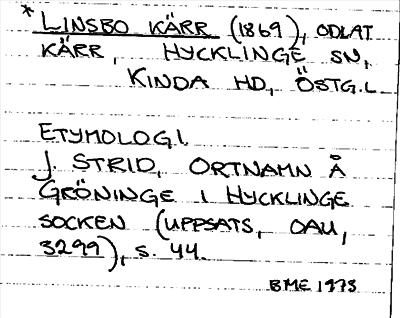 * LINSBO KÄRR (1869), ODLAT
KÄRR, HYCKLINGE SN,
KINDA HD, ÖSTG.L
ETYMOLOGI.
J. STRID, ORTNAMN Å
GRÖNINGE I HYCKLINGE
SOCKEN (UPPSATS, OAU,
3299), S. 44.
BME 1973